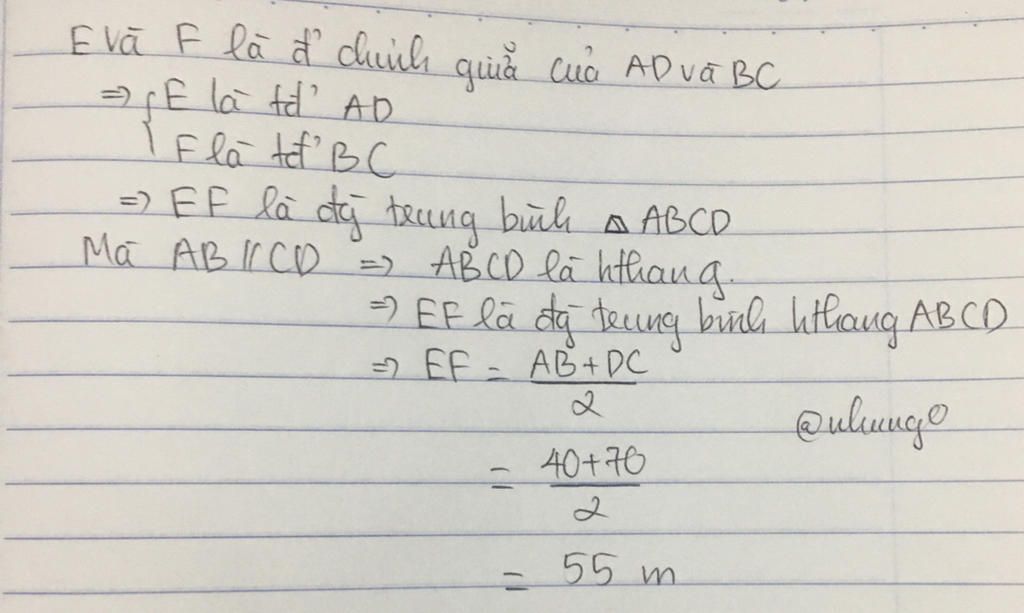 E và F là đ' chính giữa của AD và BC
=> { E là tđ' AD
F là tđ' BC
=> EF là đg trung bình △ ABCD
Mà AB // CD => ABCD là hthang.
=> EF là đg trung bình hthang ABCD
=> EF = (AB+DC)/2
@nhung0
= (40+70)/2
= 55 m